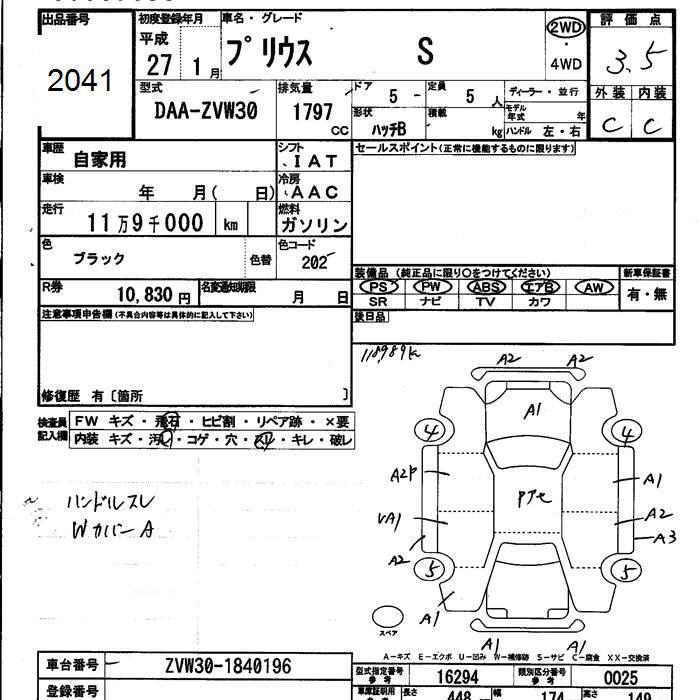 出品番号
2041
初度登録年月
平成
27 1月
車名・グレード
プリウス S
2WD
・
4WD
評価点
3.5
外装 内装
C C
型式
DAA-ZVW30
排気量
1797 CC
ドア
5 -
定員
5 人
形状
ハッチB
積載
kg
ディーラー・並行
モデル年式 年
ハンドル 左・右
車歴
自家用
シフト
IAT
車検
年 月( 日)
冷房
AAC
走行
11万9千000 km
燃料
ガソリン
色
ブラック
色替
色コード
202
R券
10,830円
名変通知期限
月 日
セールスポイント(正常に機能するものに限ります)
装備品(純正品に限り○をつけてください)
PS PW ABS エアB AW
SR ナビ TV カワ
新車保証書
有・無
後日品
注意事項申告欄(不具合内容等は具体的に記入して下さい)
修復歴 有〔箇所 〕
検査員記入欄
FW キズ・飛石・ヒビ割・リペア跡・×要
内装 キズ・汚レ・コゲ・穴・スレ・キレ・破レ
ハンドルスレ
WカバーA
118,989k
A2 A2
A1
4 4
A2P
A1
Pアセ
VA1
A2
A3
A2
5 5
A1
スペア
A1 A1
A-キズ E-エクボ U-凹み W-補修跡 S-サビ C-腐食 XX-交換済
車台番号
ZVW30-1840196
登録番号
型式指定番号
参考
16294
類別区分番号
参考
0025
車庫証明用
参考
長さ
448
幅
174
高さ
149